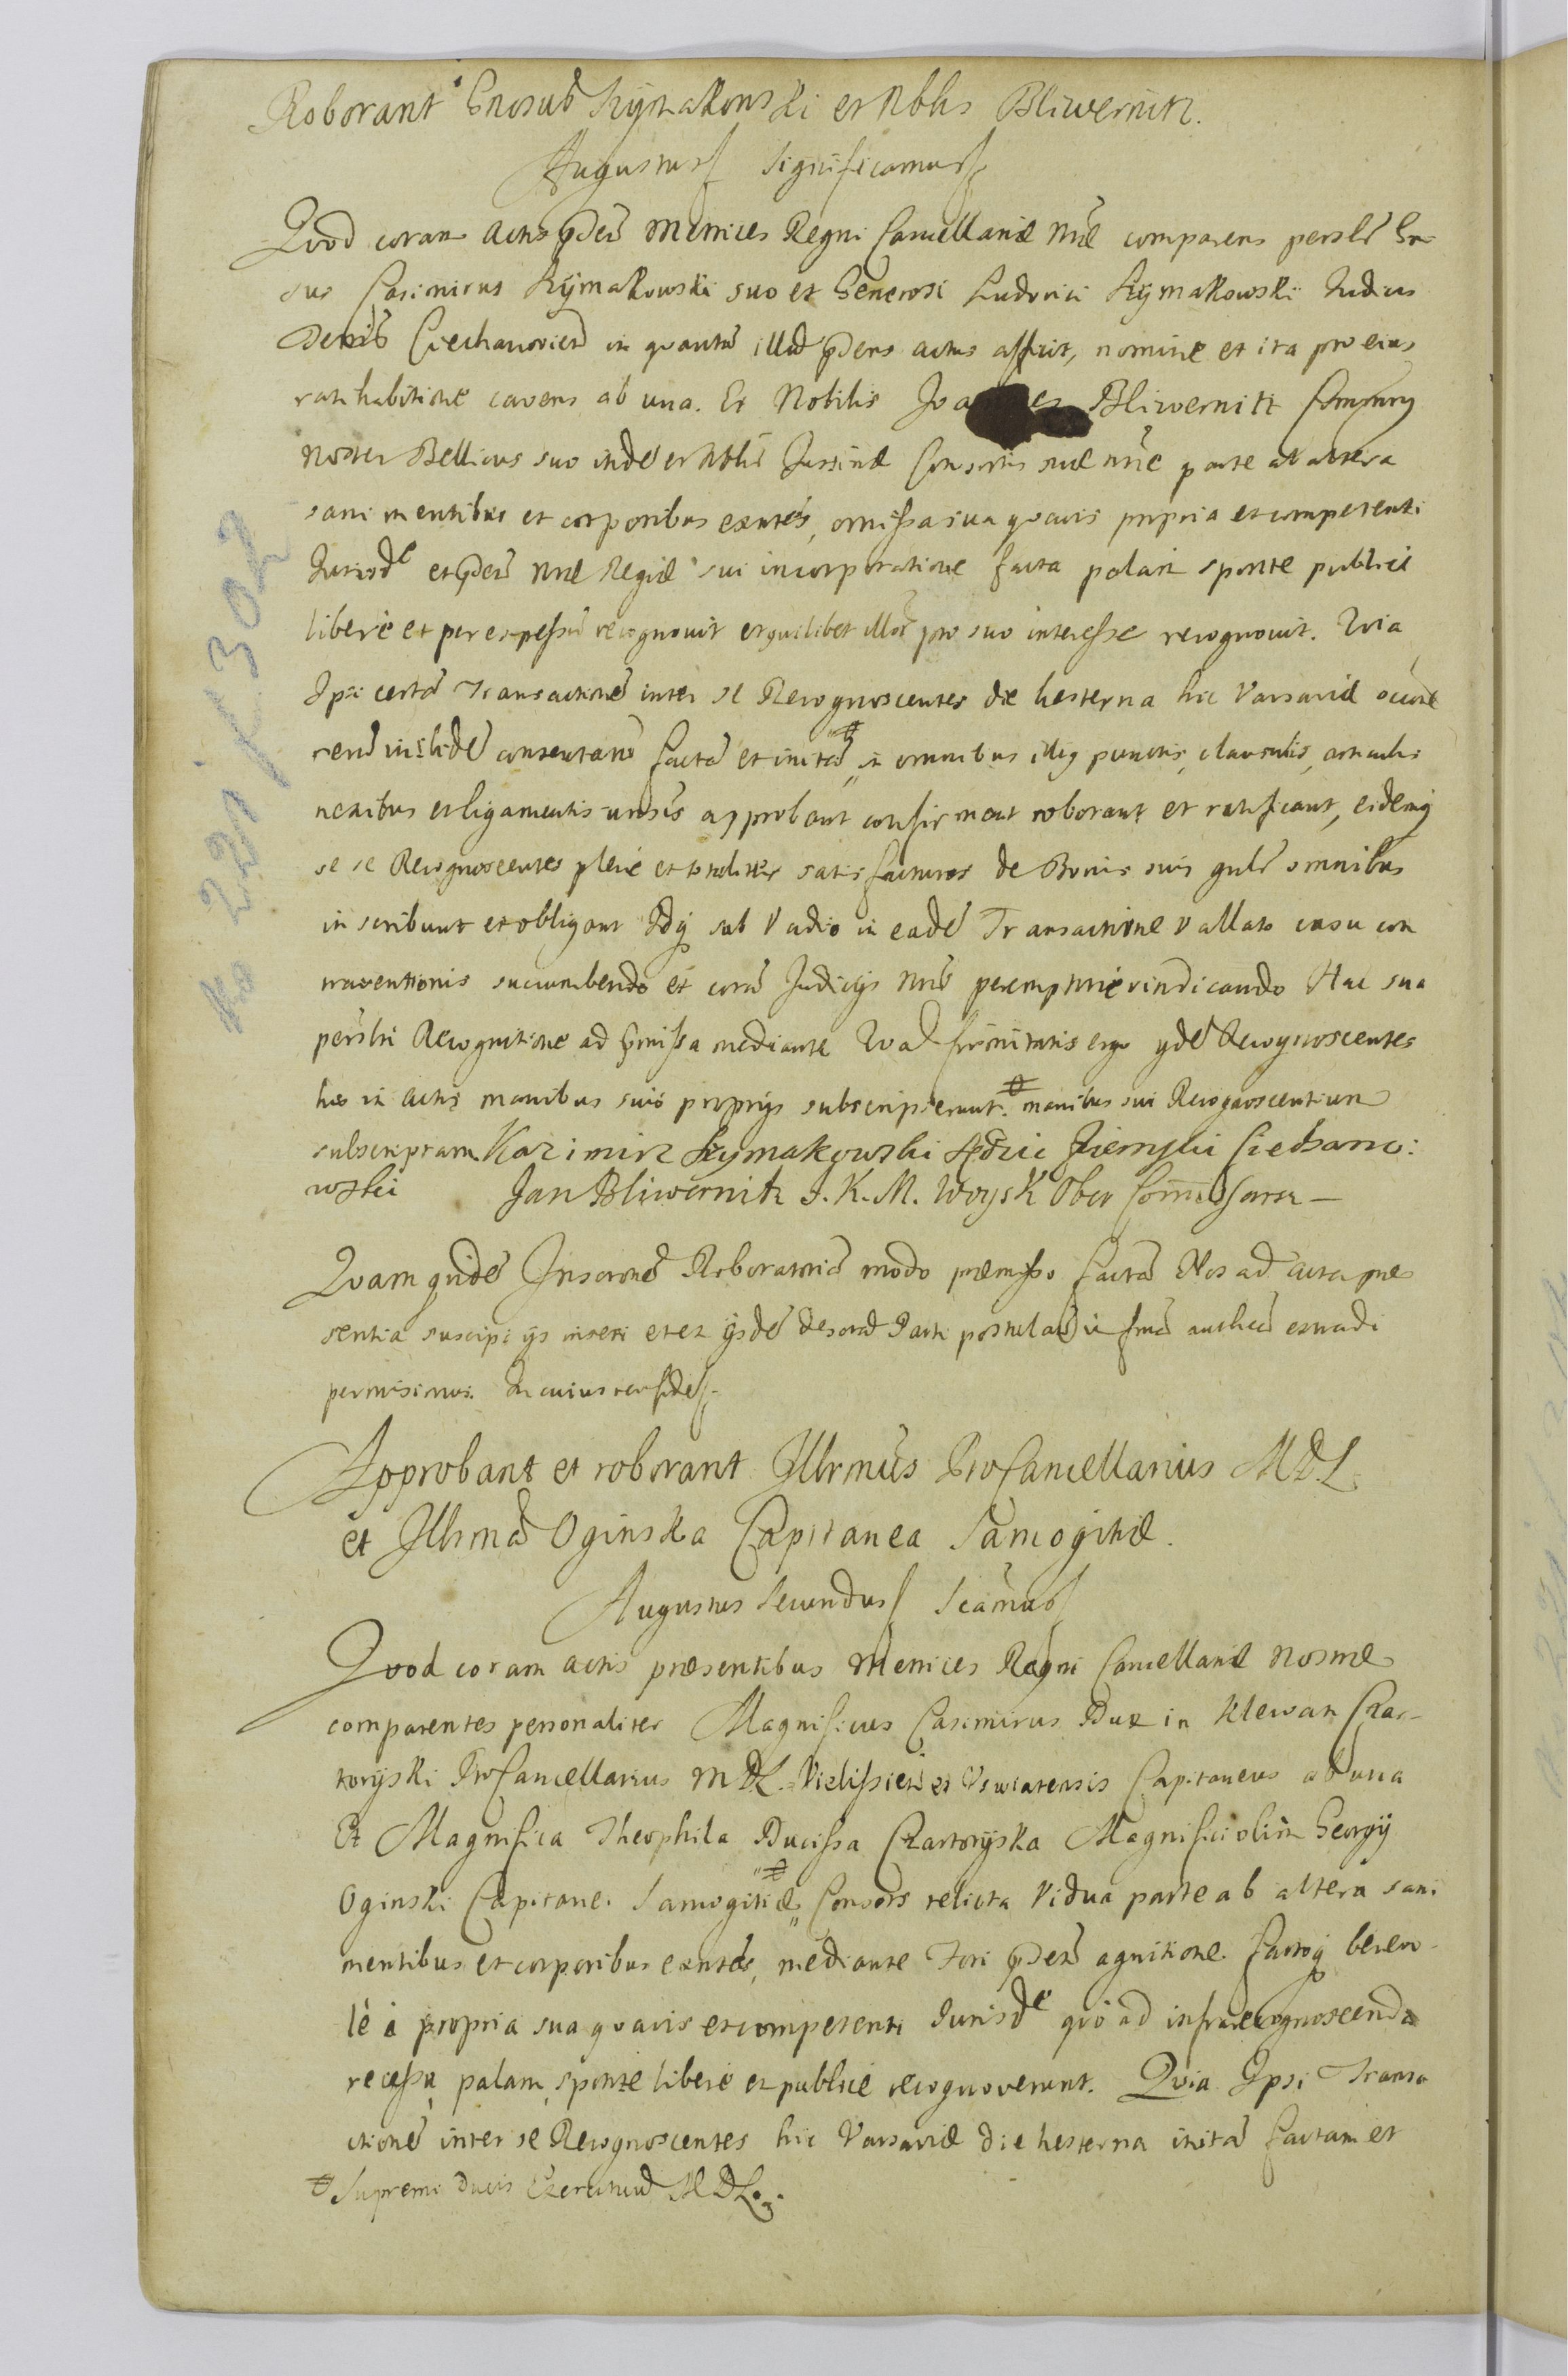 Roborant Gnosus Szymakowski et Nblis Bliwernitz.
Augustus Significamus
Quod coram Actis pñtibus Metrices Regni Cancellariæ Nræ comparens persłr Gn
sus Casimirus Szymakowski suo et Generosi Ludovici Szymakowski Judicis
Terrīs Ciechanovieñ in quantū illud pñdens actus afficit, nomine et ita pro eius
ratihabitione cavens ab una. Et Nobilis Joannes Bliwernitz
Noster Bellicus suo inde et Nblis Consortis suæ nñe parte ab altera
sani mentibus et corporibus exñtes, omissa sua quavis propria et competenti
Jurisdẽ et pñti Nræ Regiæ sui incorporatione facta palam sponte publicè
liberè et per expressū recognovit et quilibet illor̃ pro suo interesse recognovit. Quia
Ipsi certã Transactionẽ inter se Recognoscentes die hesterna hic Varsaviæ
consentanẽ factã et initã in omnibus illis punctis, clausulis, articulis
nexibus et ligamentis unõsis approbant confirmant roborant et ratificant, eidemq
se se Recognoscentes plenè et totaliter satisfacturos de Bonis suis gñlr omnibus
inscribunt et obligant Idq sub Vadio in eadẽ Transactione vallato casu con
traventionis succumbendo et corã Judicijs Nrĩs peremptoriè vindicando Hac sua
perslri Recognitione ad præmissa mediante Quod firmitatis ergo ydẽ Recognoscentes
hic in actis manibus suis proprijs subscripserunt. # manibus sui Recognoscentium
subscriptam Kazimirz Szymakowski Sędzic Ziemski Ciechano:
wski Jan Bliwernitz J. K. M. Woysk Ober Commissarz —
Quam quidẽ Inscriptionẽ Roboratoriã modo præmisso factã Nos ad Acta præ
sentia suscipi ijs inseri et ex ijsdẽ desumi Parti postulanti in formã authenticã extradi
permisimus. In cuius rei fidẽ.
Approbant et roborant Illrmũs ProCancellarius M.D.L.
et Illsmã Oginska Capitanea Samogitiæ.
Augustus Secundus Scãmus
Quod coram Actis præsentibus Metrices Regni Cancellariæ Nostræ
comparentes personaliter Magnificus Casimirus Dux in Klewan Czar-
toryiski ProCancellarius M.D.L. Vielissieñ et Uswiatensis Capitaneus ab una
Et Magnifica Theophila Ducissa Czartoryiska Magnifici olim Georgij
Oginski Capitanei Samogitiæ # Consors relicta Vidua parte ab altera sani
mentibus et corporibus exñtes, mediante Fori pñtis agnitione. factoq benevo
lè à propria sua quavis et competenti Jurisdẽ quo ad infra recognoscenda
recessu, palam, sponte liberè et publicè recognoverunt. Quia Ipsi Transa
ctionẽ inter se Recognoscentes hic Varsaviæ die hesterna initã factam et
# Supremi Ducis Exercituũ M.D.L.